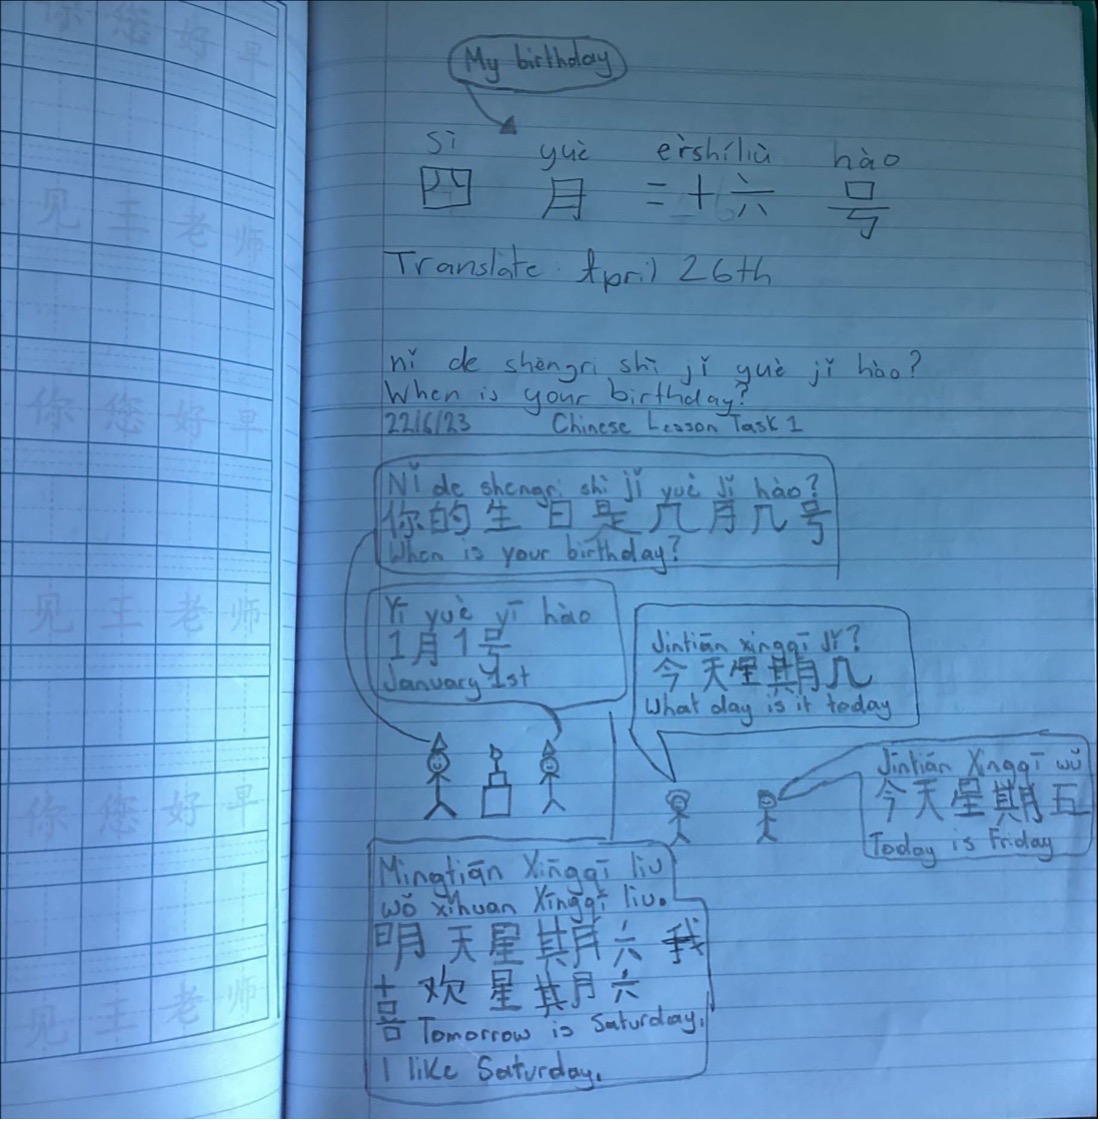 你 您 好 早
见 王 老 师
你 您 好 早
见 王 老 师
你 您 好 早
见 王 老 师
My birthday
sì yuè èrshíliù hào
四 月 二十六 号
Translate: April 26th
nǐ de shēngrì shì jǐ yuè jǐ hào?
When is your birthday?
22/6/23 Chinese Lesson Task 1
Nǐ de shengri shì jǐ yuè jǐ hào?
你的生日是几月几号
When is your birthday?
Yī yuè yī hào
1月1号
January 1st
Jīntiān xīngqī jǐ?
今天星期几
What day is it today
Jīntiān Xīngqī wǔ
今天星期五
Today is Friday
Mingtiān Xīngqī liù
wǒ xǐhuan Xīngqī liù.
明天星期六 我
喜欢星期六
Tomorrow is Saturday.
I like Saturday.